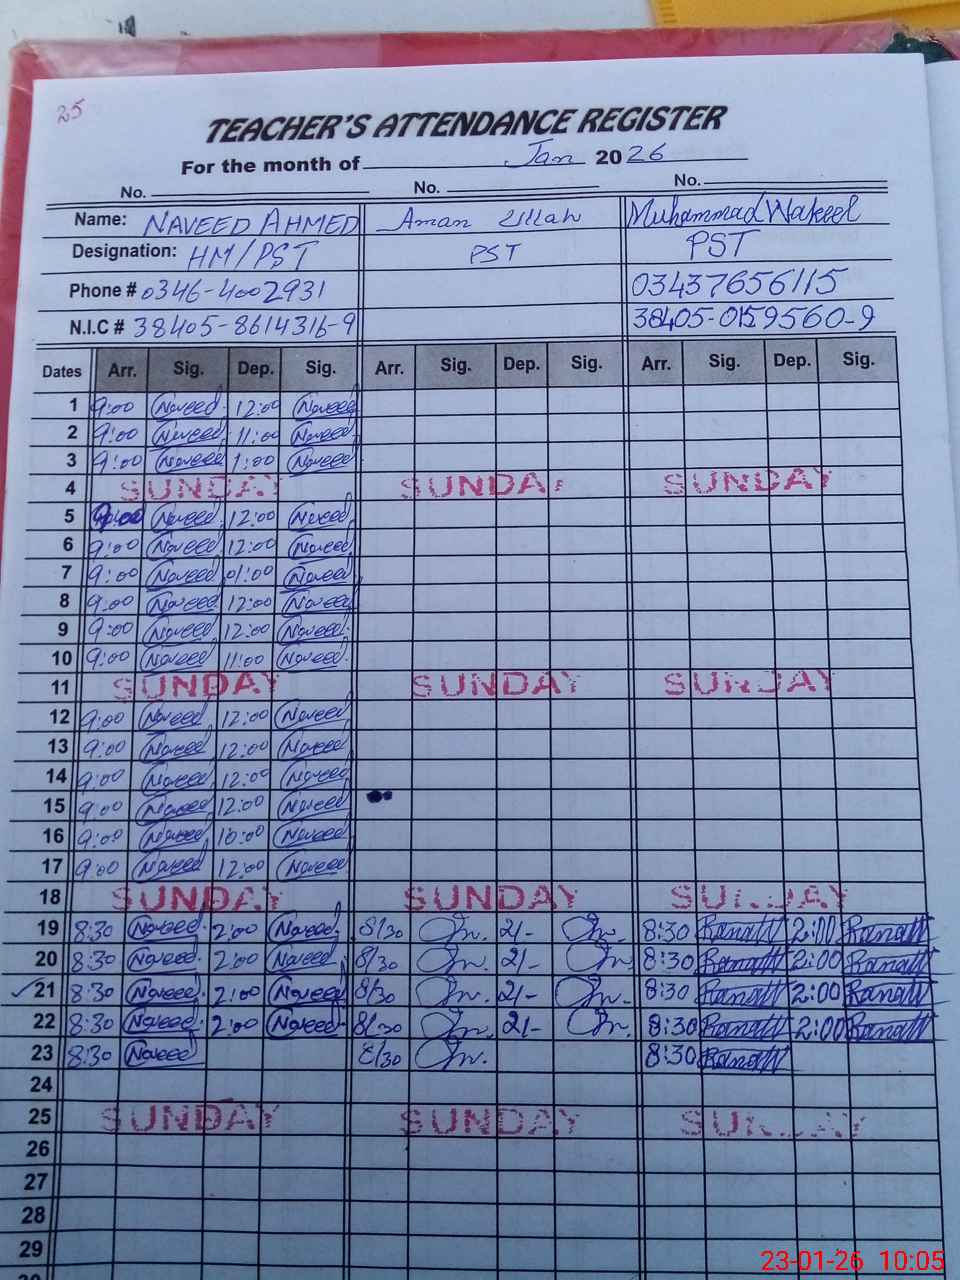 25
TEACHER'S ATTENDANCE REGISTER
For the month of Jan 2026
No. No. No.
Name: NAVEED AHMED Aman Ullah Muhammad Wakeel
Designation: HM/PST PST PST
Phone # 0346-4002931 03437656115
N.I.C # 38405-8614316-9 38405-0159560-9
Dates Arr. Sig. Dep. Sig. Arr. Sig. Dep. Sig. Arr. Sig. Dep. Sig.
1 9:00 Naveed 12:00 Naveed
2 9:00 Naveed 11:00 Naveed
3 9:00 Naveed 1:00 Naveed
4 SUNDAY SUNDAY SUNDAY
5 9:00 Naveed 12:00 Naveed
6 9:00 Naveed 12:00 Naveed
7 9:00 Naveed 01:00 Naveed
8 9:00 Naveed 12:00 Naveed
9 9:00 Naveed 12:00 Naveed
10 9:00 Naveed 11:00 Naveed
11 SUNDAY SUNDAY SUNDAY
12 9:00 Naveed 12:00 Naveed
13 9:00 Naveed 12:00 Naveed
14 9:00 Naveed 12:00 Naveed
15 9:00 Naveed 12:00 Naveed
16 9:00 Naveed 10:00 Naveed
17 9:00 Naveed 12:00 Naveed
18 SUNDAY SUNDAY SUNDAY
19 8:30 Naveed 2:00 Naveed 8/30 2/- 8:30 2:00
20 8:30 Naveed 2:00 Naveed 8/30 2/- 8:30 2:00
21 8:30 Naveed 2:00 Naveed 8/30 2/- 8:30 2:00
22 8:30 Naveed 2:00 Naveed 8/30 2/- 8:30 2:00
23 8:30 Naveed 8/30 8:30
24
25 SUNDAY SUNDAY SUNDAY
26
27
28
29
30
23-01-26 10:05